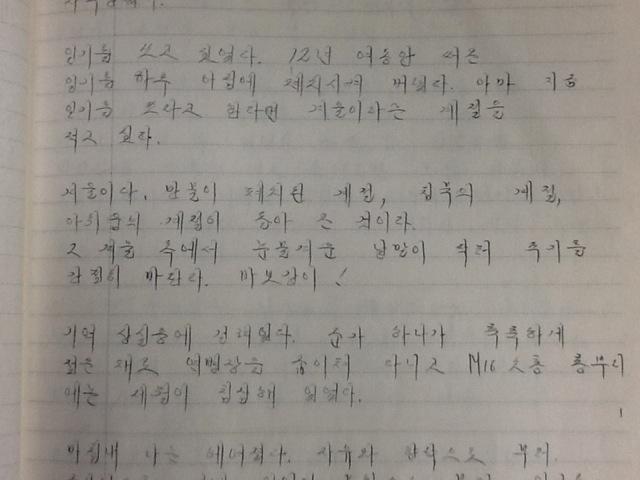 일기를 쓰고 싶었다. 12년 여동안 써온
일기를 하루 아침에 폐지시켜 버렸다. 아마 지금
일기를 쓰라고 한다면 겨울이라는 계절을
적고 싶다.
겨울이다. 만물이 폐지된 계절, 침묵의 계절,
아쉬움의 계절이 돌아 온 것이다.
그 계절 속에서 눈물겨운 낱말이 닥터 주기를
간절히 바란다. 바보같이!
기억 상실증에 걸려있다. 손가 하나가 축축하게
젖은 채로 연병장을 숨이며 다니고 M16 소총 총부리
에는 세월이 침식해 있었다.
마침내 나는 헤어졌다. 자유와 압박으로 부터.